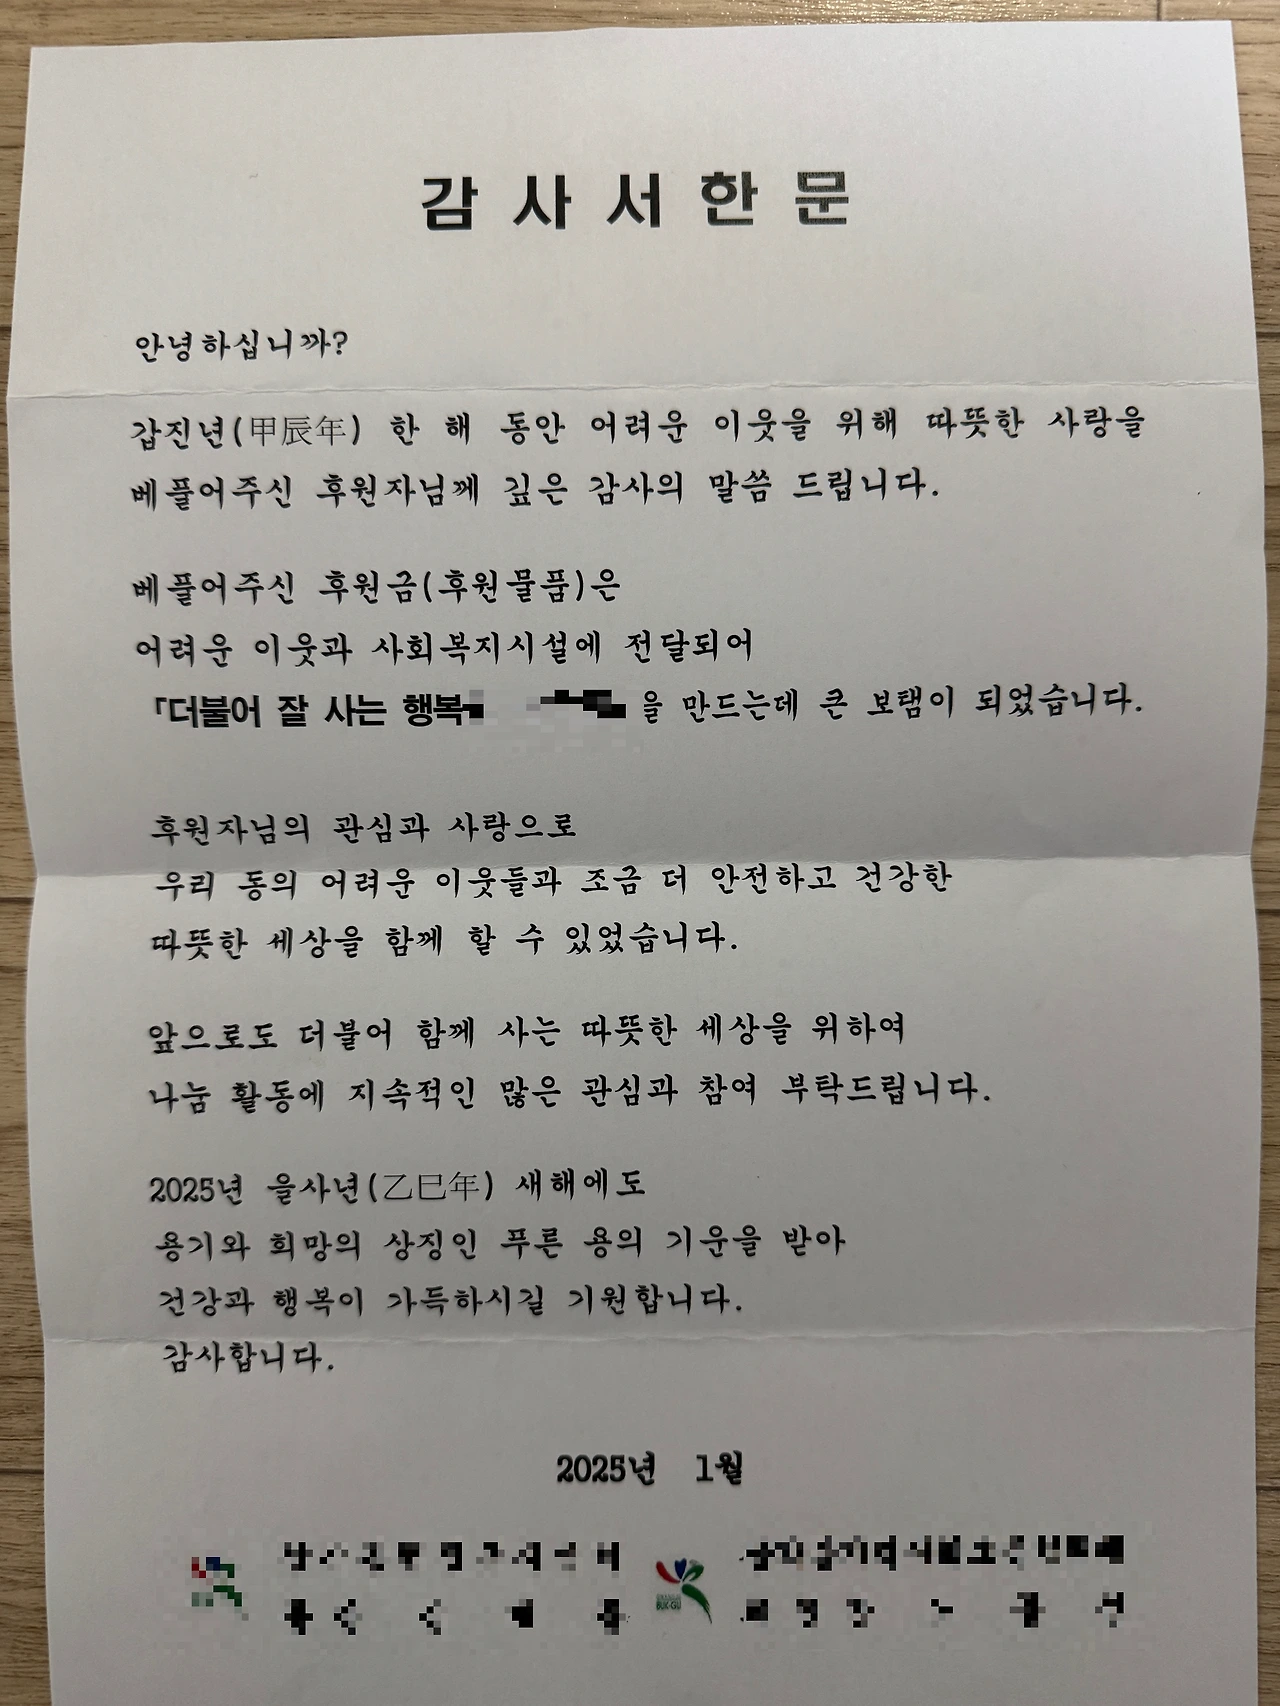 감사서한문
안녕하십니까?
갑진년(甲辰年) 한 해 동안 어려운 이웃을 위해 따뜻한 사랑을
베풀어주신 후원자님께 깊은 감사의 말씀 드립니다.
베풀어주신 후원금(후원물품)은
어려운 이웃과 사회복지시설에 전달되어
「더불어 잘 사는 행복 을 만드는데 큰 보탬이 되었습니다.
후원자님의 관심과 사랑으로
우리 동의 어려운 이웃들과 조금 더 안전하고 건강한
따뜻한 세상을 함께 할 수 있었습니다.
앞으로도 더불어 함께 사는 따뜻한 세상을 위하여
나눔 활동에 지속적인 많은 관심과 참여 부탁드립니다.
2025년 을사년(乙巳年) 새해에도
용기와 희망의 상징인 푸른 용의 기운을 받아
건강과 행복이 가득하시길 기원합니다.
감사합니다.
2025년 1월
BUK-GU